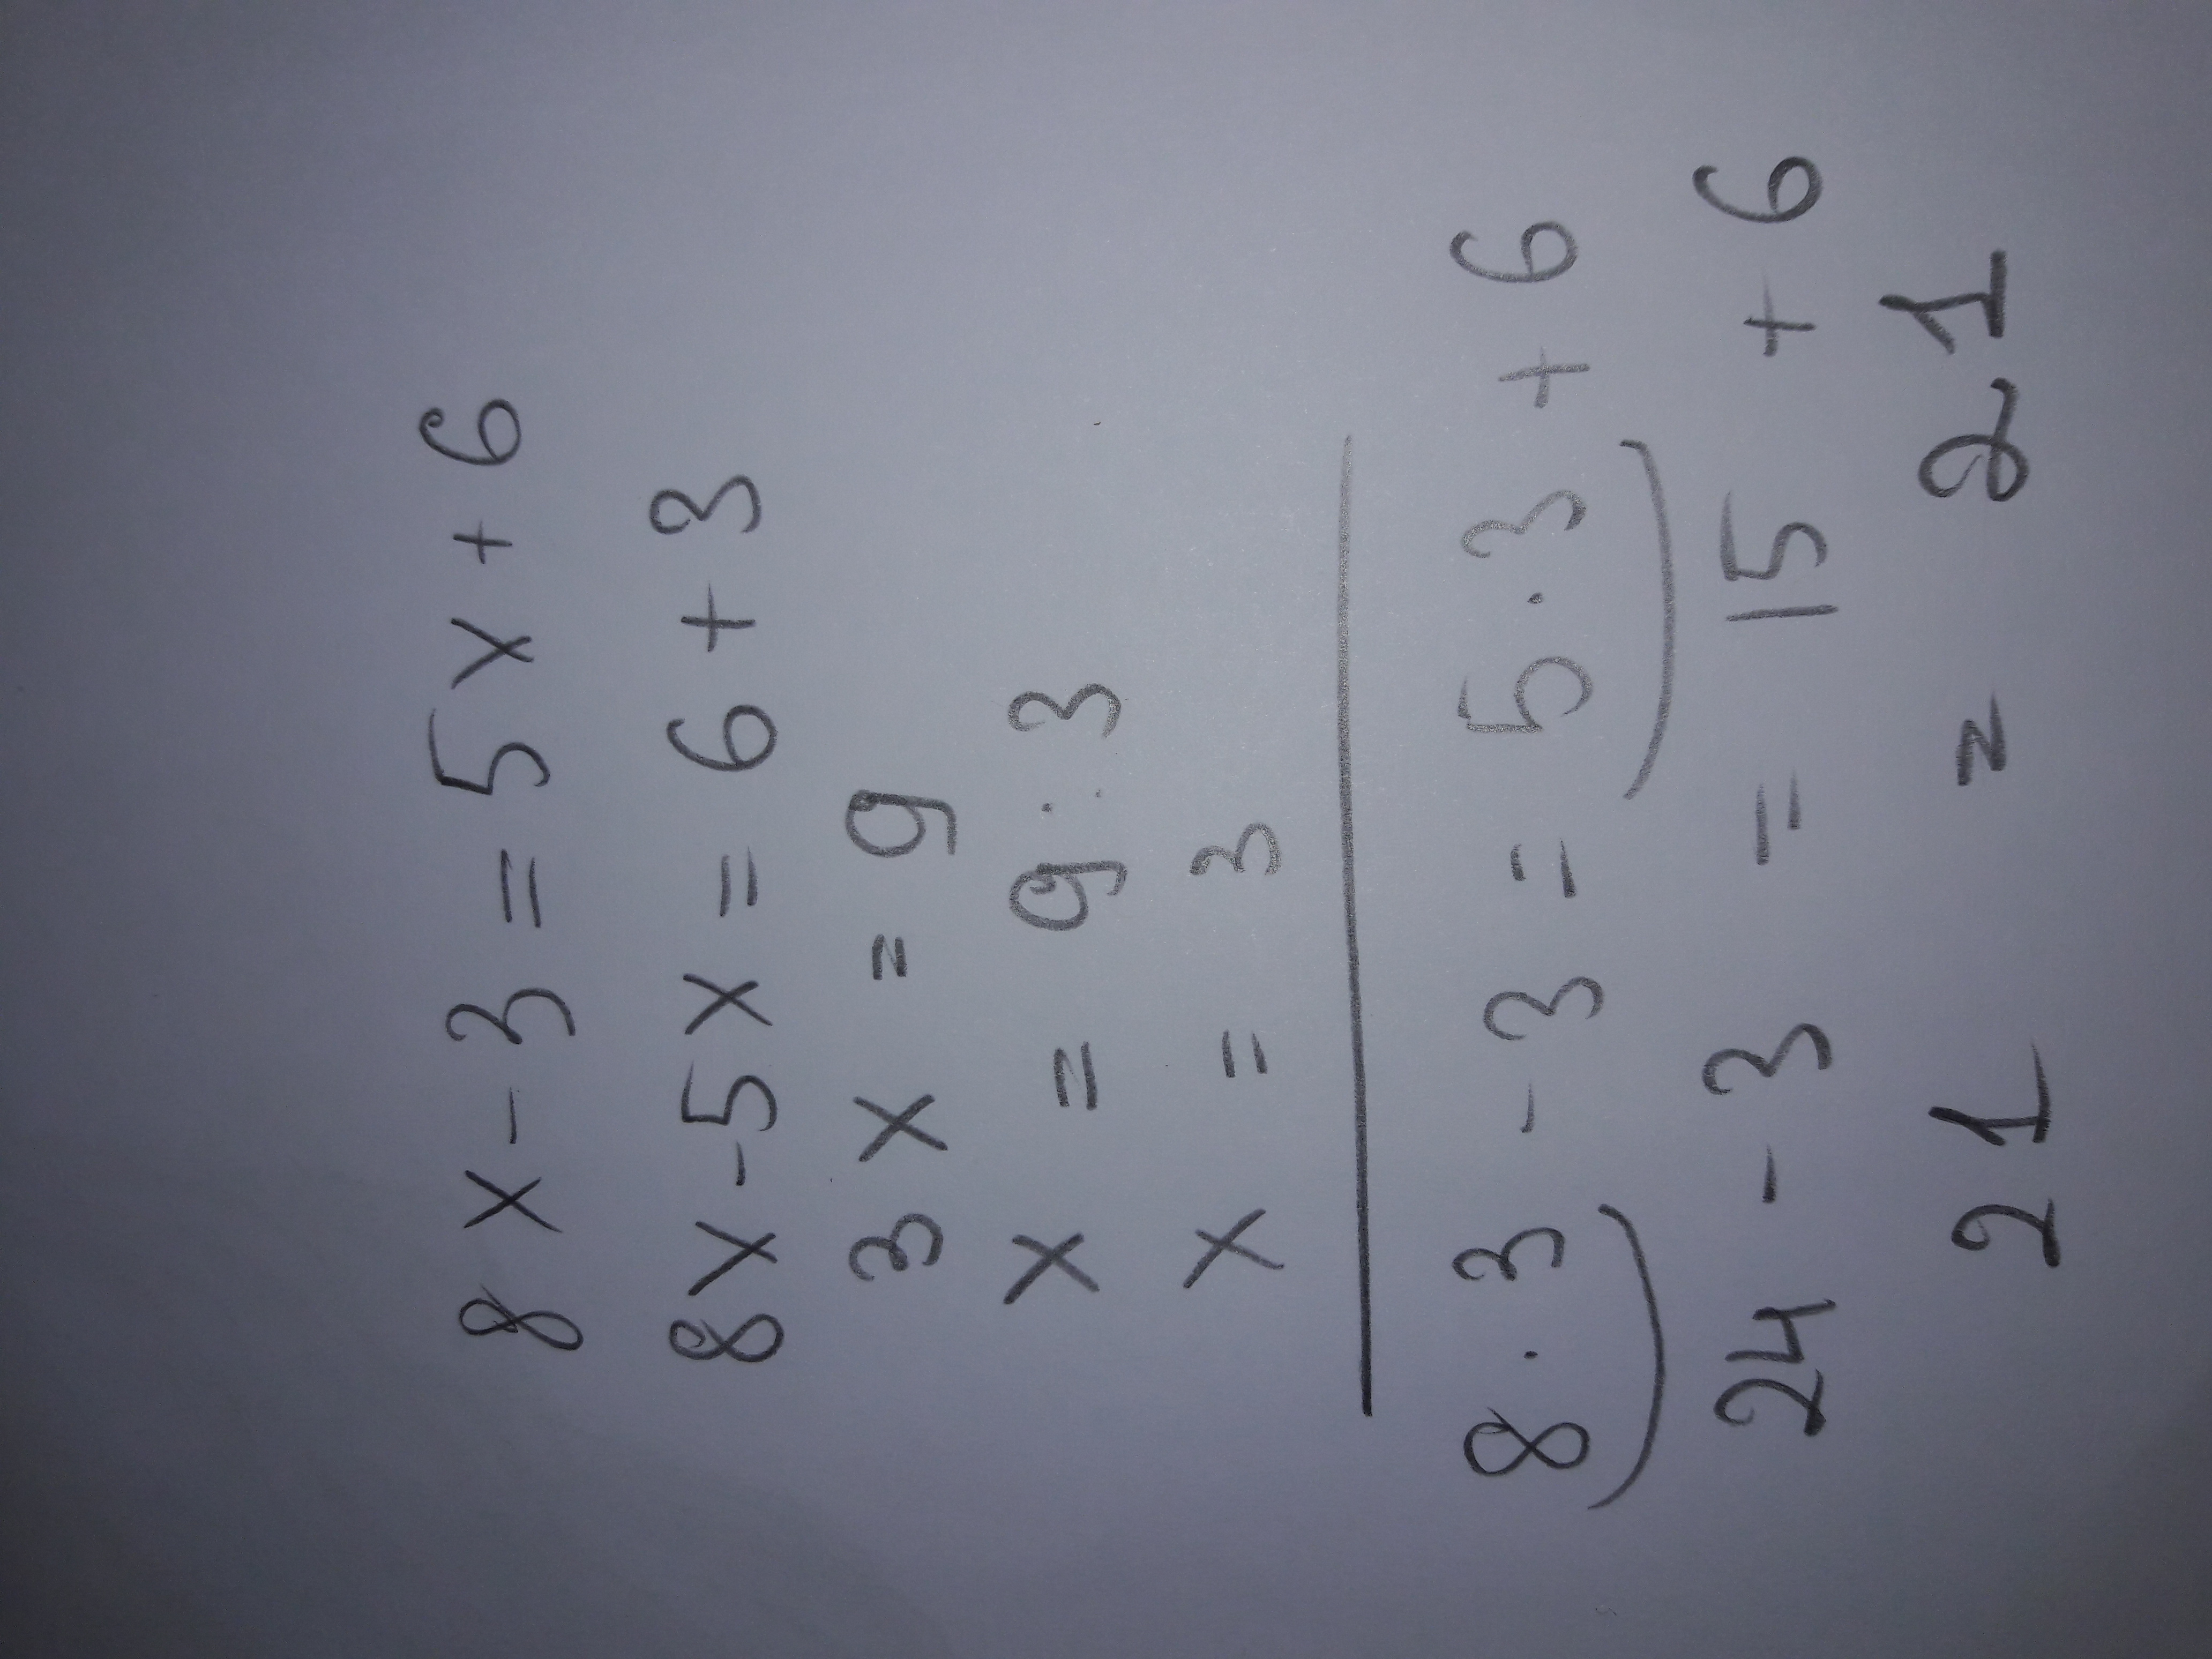 8x-3=5x+6
8x-5x=6+3
3x=9
x=9:3
x=3
8.3-3=5.3+6
24-3=15+6
21=21